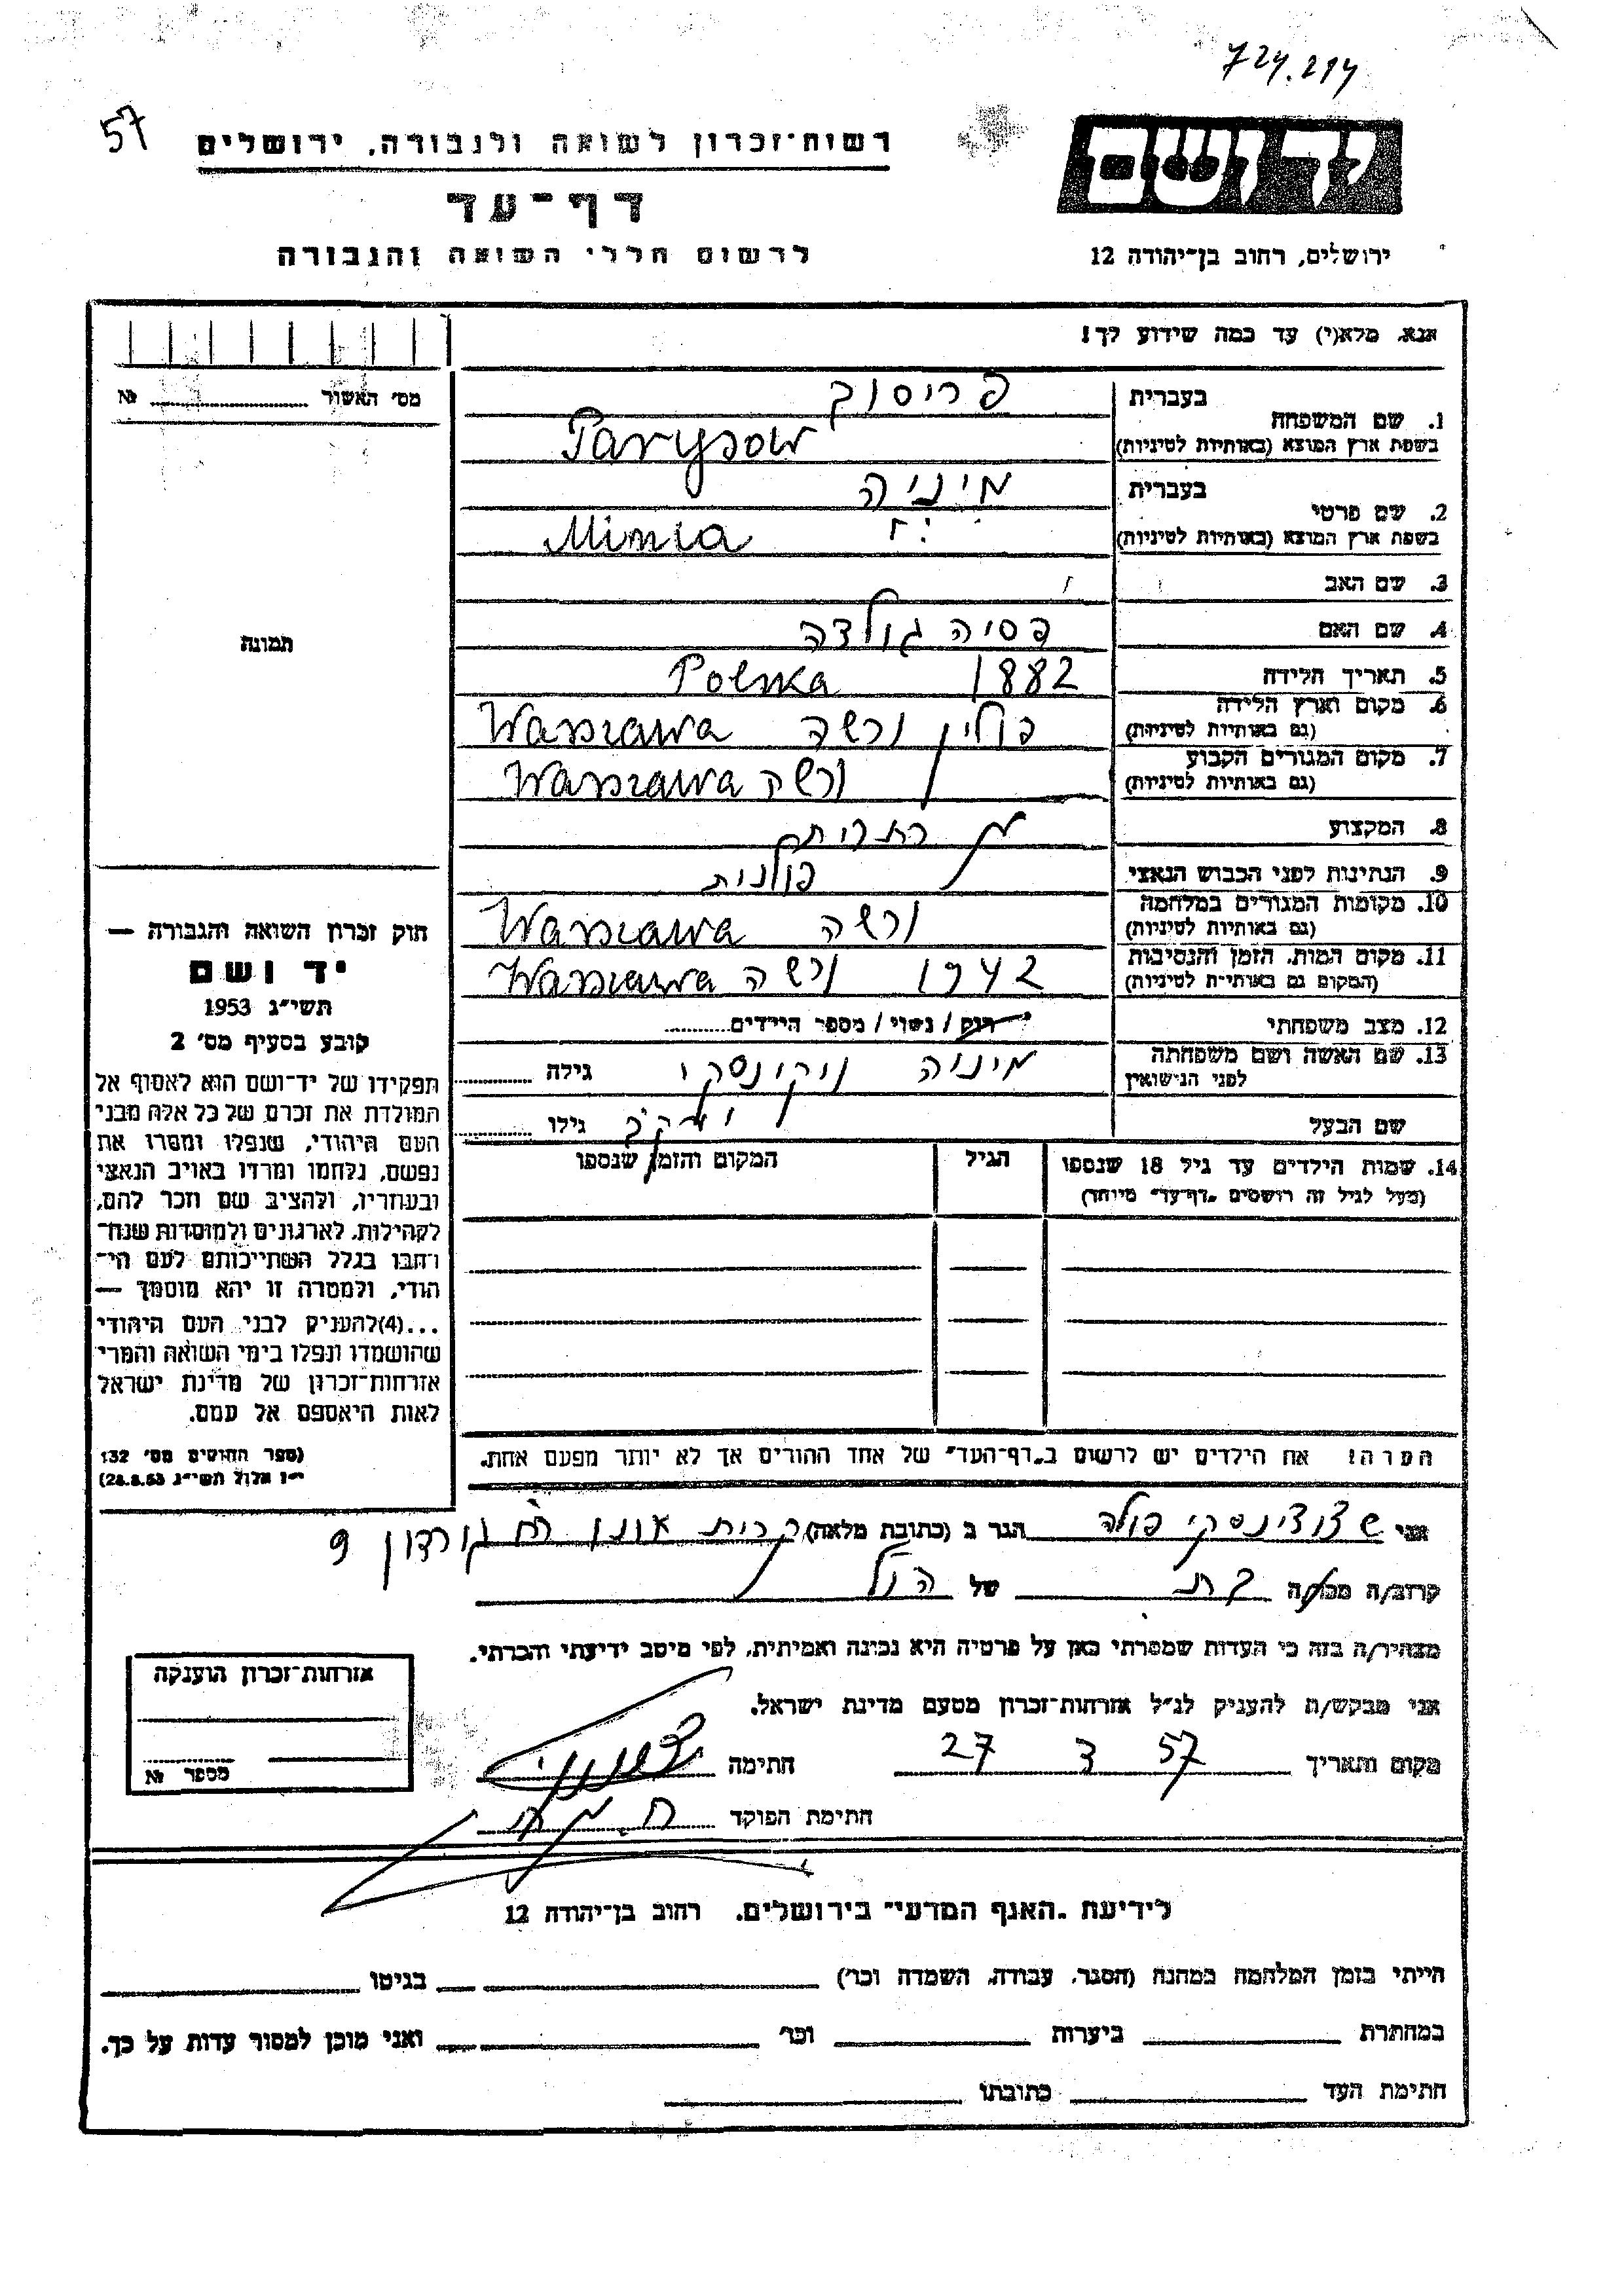 724.214
57
רשות־זכרון לשואה ולגבורה, ירושלים
דף־עד
לרשום חללי השואה והגבורה
יד ושם
ירושלים, רחוב בן־יהודה 12
אנא, מלא(י) עד כמה שידוע לך!
מס׳ האשור № 
1. שם המשפחה
בעברית פריסוב
בשפת ארץ המוצא (באותיות לטיניות) Parysow
2. שם פרטי
בעברית מיניה
בשפת ארץ המוצא (באותיות לטיניות) Minia
3. שם האב
4. שם האם פסיה גולדה
5. תאריך הלידה 1882 Polska
6. מקום וארץ הלידה פולין ורשה Warszawa
(גם באותיות לטיניות)
7. מקום המגורים הקבוע ורשה Warszawa
(גם באותיות לטיניות)
8. המקצוע
9. הנתינות לפני הכבוש הנאצי פולנית
10. מקומות המגורים במלחמה ורשה Warszawa
(גם באותיות לטיניות)
11. מקום המות, הזמן והנסיבות 1942 ורשה Warszawa
(המקום גם באותיות לטיניות)
12. מצב משפחתי רווק / נשוי / מספר הילדים
13. שם האשה ושם משפחתה מיניה גילה
לפני הנישואין
שם הבעל יעקב גילו
14. שמות הילדים עד גיל 18 שנספו הגיל המקום והזמן שנספו
(מעל לגיל זה רושמים „דף־עד״ מיוחד)
תמונה
חוק זכרון השואה והגבורה —
יד ושם
תשי״ג 1953
קובע בסעיף מס׳ 2
תפקידו של יד־ושם הוא לאסוף אל
המולדת את זכרם של כל אלה מבני
העם היהודי, שנפלו ומסרו את
נפשם, נלחמו ומרדו באויב הנאצי
ובעוזריו, ולהציב שם וזכר להם,
לקהילות, לארגונים ולמוסדות שנח־
רבו בגלל השתייכותם לעם הי־
הודי, ולמטרה זו יהא מוסמך —
...(4)להעניק לבני העם היהודי
שהושמדו ונפלו בימי השואה והמרי
אזרחות־זכרון של מדינת ישראל
לאות היאספם אל עמם.
(ספר החוקים מס׳ 132
י״ז אלול תשי״ג 28.8.53)
הערה! את הילדים יש לרשום ב„דף־העד״ של אחד ההורים אך לא יותר מפעם אחת.
אני פולה הגר ב (כתובת מלאה) קרית אונו רח׳ גורדון 9
קרוב/ה מכר/ה בת של הנ״ל
מצהיר/ה בזה כי העדות שמסרתי כאן על פרטיה היא נכונה ואמיתית, לפי מיטב ידיעתי והכרתי.
אני מבקש/ת להעניק לנ״ל אזרחות־זכרון מטעם מדינת ישראל.
מקום ותאריך 27 3 57 חתימה
חתימת הפוקד
אזרחות־זכרון הוענקה
מספר №
לידיעת „האגף המדעי״ בירושלים, רחוב בן־יהודה 12
הייתי בזמן המלחמה במחנה (הסגר, עבודה, השמדה וכו׳) בגיטו
במחתרת ביערות וכו׳ ואני מוכן למסור עדות על כך.
חתימת העד כתובתו